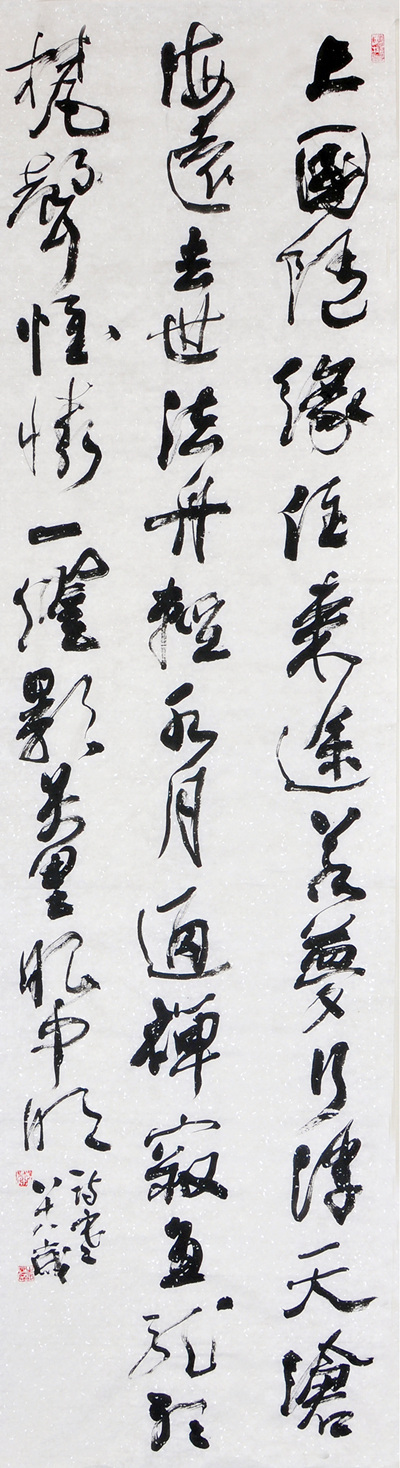 上國隨緣住來途若夢行浮天滄
海遠去世法舟輕水月通禪寂魚龍聽
梵聲惟憐一燈影萬里眼中明
八十八歲